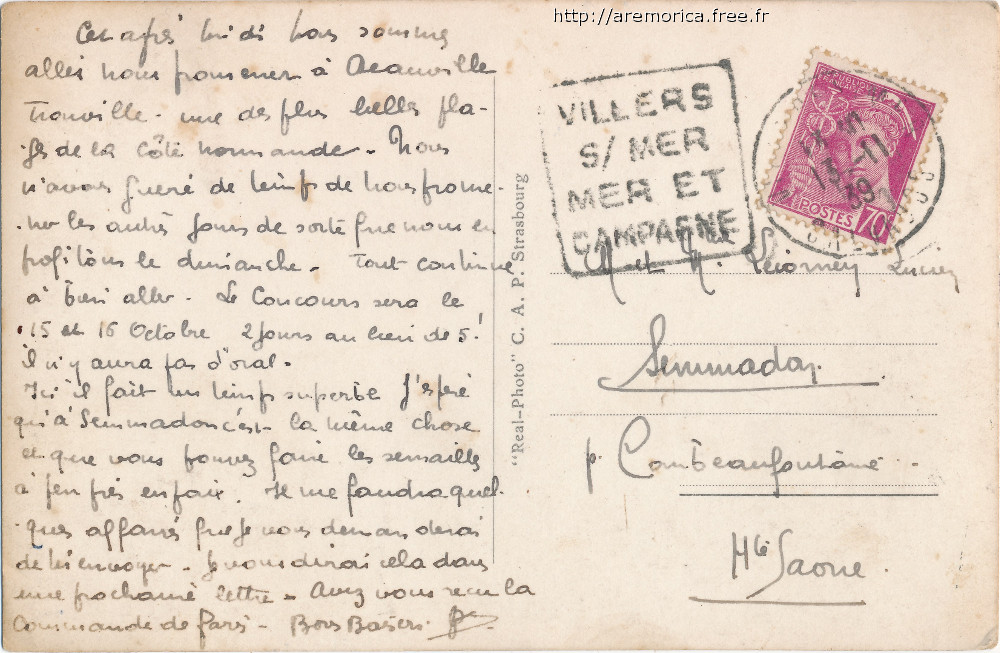 http://aremorica.free.fr
Cet après midi nous sommes
allés nous promener à Deauville
Trouville - une des plus belles pla-
ges de la Côte normande - Nous
n'avons guère de temps de nous prome-
ner les autres jours de sorte que nous en
profitons le dimanche - Tout continue
à bien aller - Le Concours sera le
15 et 16 Octobre 2 jours au lieu de 5!
il n'y aura pas d'oral -
Ici il fait un temps superbe J'espère
qu'à Semmadon c'est la même chose
et que vous pouvez faire les semailles
à peu près en paix. Il me faudra quel-
ques affaires que je vous demanderai
de m'envoyer - Je vous dirai cela dans
une prochaine lettre - Avez vous reçu la
Commande de Paris - Bons Baisers
"Real-Photo" C. A. P. Strasbourg
VILLERS
S/ MER
MER ET
CAMPAGNE
REPUBLIQUE
FRANÇAISE
POSTES 70c
CALVADOS
M et M
Semmadon
p. Combeaufontaine
Hte Saone